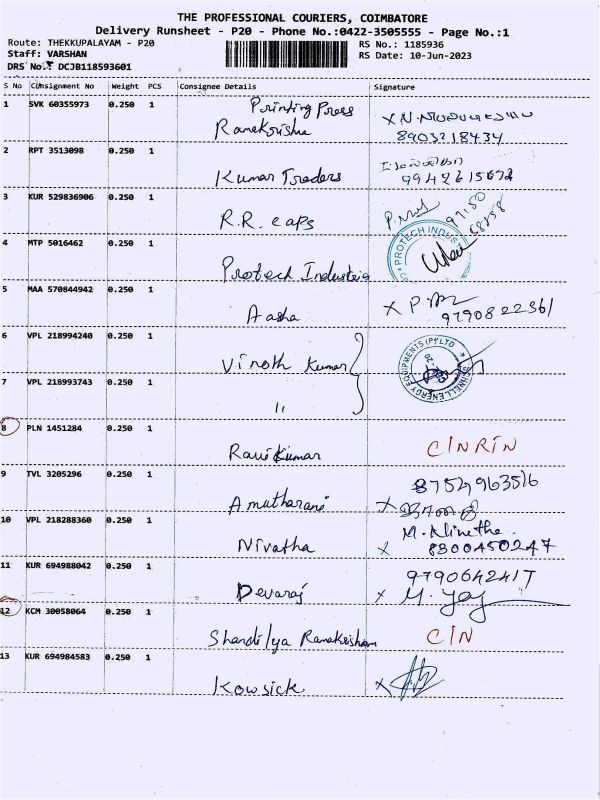 THE PROFESSIONAL COURIERS, COIMBATORE
Delivery Runsheet - P20 - Phone No.:0422-3505555 - Page No.:1
Route: THEKKUPALAYAM - P20
RS No.: 1185936
Staff: VARSHAN
RS Date: 10-Jun-2023
DRS No. DCJB118593601
S No Consignment No Weight PCS Consignee Details Signature
1 SVK 60355973 0.250 1 Printing Press
Ramakrishna
8903218434
2 RPT 3513098 0.250 1
Kumar Traders
3 KUR 529836906 0.250 1
R.R. caps
4 MTP 5016462 0.250 1 PROTECH INDUS
Protech Industries
5 MAA 570844942 0.250 1
Aasha 9790822361
6 VPL 218994240 0.250 1
Vinoth Kumar
ENERGY EQUIPMENTS (P) LTD
7 VPL 218993743 0.250 1
"
8 PLN 1451284 0.250 1
Ravi Kumar
9 TVL 3205296 0.250 1 8754963516
Amutharani
10 VPL 218288360 0.250 1
Nivatha 8300450247
11 KUR 694988042 0.250 1 9790642417
Devaraj
12 KCM 30058064 0.250 1
Shandilya Ramakrishnan
13 KUR 694984583 0.250 1
Kowsick